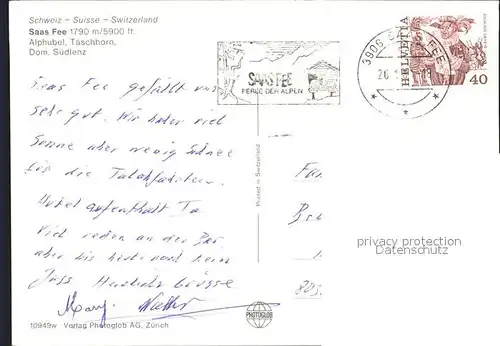 Schweiz – Suisse – Switzerland
Saas Fee 1790 m/5900 ft.
Alphubel, Täschhorn,
Dom, Südlenz
SAAS FEE
PERLE DER ALPEN
3906 SAAS FEE
HELVETIA
40
Saas Fee gefällt uns
sehr gut. Wir haben viel
Sonne aber wenig Schnee
für die Talabfahrten.
Hotel aufenthalt Ia
Viel reden an der Bar
aber bis heute noch kein
Jass Herzliche Grüsse
Printed in Switzerland
privacy protection
Datenschutz
PHOTOGLOB
10949w Verlag Photoglob AG, Zürich